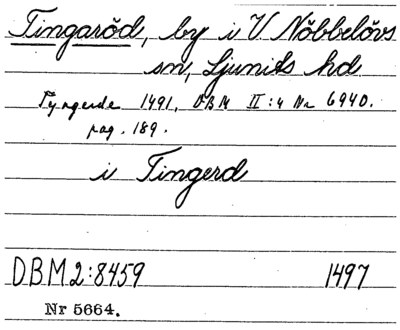 Tingaröd, by i V Nöbbelövs
sn, Ljunits hd
Tyngerde 1491, DBM II:4 Nr 6940.
pag. 189.
i Tingerd
DBM 2:8459 1497
Nr 5664.